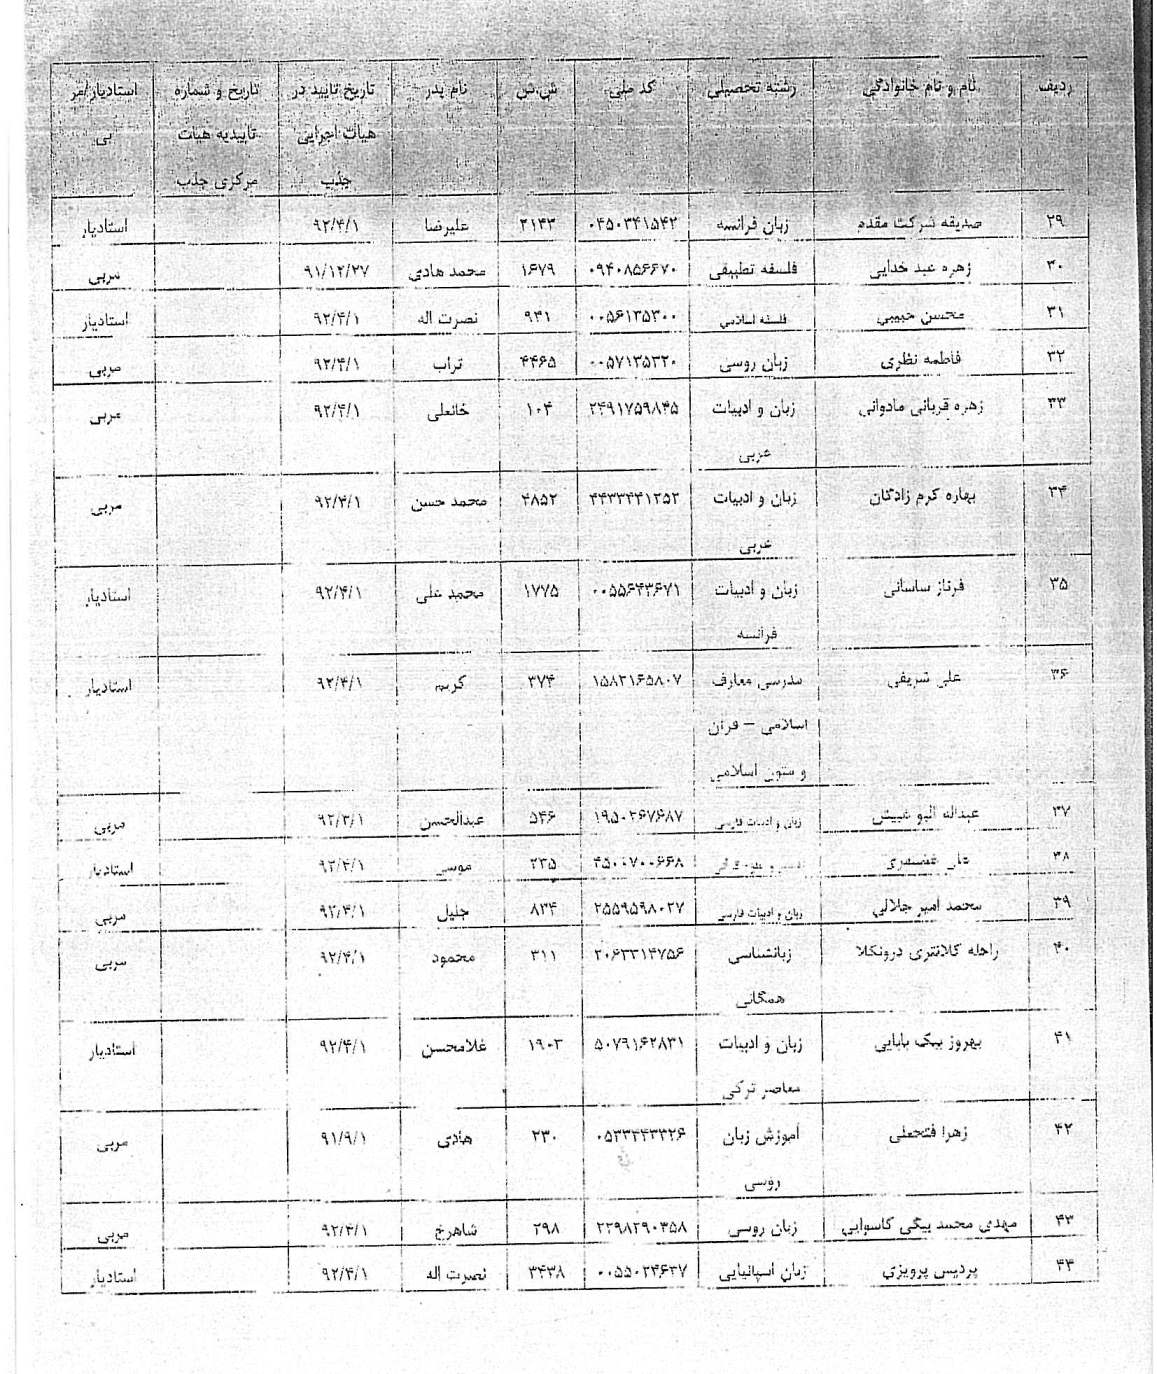 ردیف نام و نام خانوادگی رشته تحصیلی کد ملی ش.ش نام پدر تاریخ تایید در تاریخ و شماره استادیار/مر
هیات اجرایی تاییدیه هیات بی
جذب مرکزی جذب
۲۹ صدیقه شرکت مقدم زبان فرانسه ۲۱۴۳ علیرضا ۹۲/۴/۱ استادیار
۳۰ زهره عبد خدایی فلسفه تطبیقی ۰۹۴۰۸۵۶۶۷۰ ۱۶۷۹ محمد هادی ۹۱/۱۲/۲۷ مربی
۳۱ محسن حبیبی فلسفه اسلامی ۰۰۵۶۱۳۵۳۰۰ ۹۳۱ نصرت اله ۹۲/۴/۱ استادیار
۳۲ فاطمه نظری زبان روسی ۰۰۵۷۱۳۵۳۲۰ ۴۴۶۵ تراب ۹۲/۴/۱ مربی
۳۳ زهره قربانی مادوانی زبان و ادبیات ۱۰۴ خانعلی ۹۲/۴/۱ مربی
عربی
۳۴ بهاره کرم زادگان زبان و ادبیات ۴۸۵۲ محمد حسن ۹۲/۴/۱ مربی
عربی
۳۵ فرناز ساسانی زبان و ادبیات ۰۰۵۵۶۴۳۶۷۱ ۱۷۷۵ محمد علی ۹۲/۴/۱ استادیار
فرانسه
۳۶ علی شریفی مدرسی معارف ۳۷۴ کریم ۹۲/۴/۱ استادیار
اسلامی – قرآن
و متون اسلامی
۳۷ عبداله البو غبیش زبان و ادبیات فارسی ۱۹۵۰۲۶۷۶۸۷ ۵۴۶ عبدالحسن مربی
۳۸ علی ۲۳۵ موسی ۹۲/۴/۱ استادیار
۳۹ محمد امیر جلالی زبان و ادبیات فارسی ۲۵۵۹۵۹۸۰۲۷ ۸۳۴ جلیل ۹۲/۴/۱ مربی
۴۰ راحله کلانتری درونکلا زبانشناسی ۲۰۶۳۳۱۴۷۵۶ ۳۱۱ محمود ۹۲/۴/۱ مربی
همگانی
۴۱ بهروز بیک بابایی زبان و ادبیات ۵۰۷۹۱۶۲۸۳۱ ۱۹۰۳ غلامحسن ۹۲/۴/۱ استادیار
معاصر ترکی
۴۲ زهرا فتحعلی آموزش زبان ۲۳۰ هادی ۹۱/۹/۱ مربی
روسی
۴۳ مهدی محمد بیگی کاسوایی زبان روسی ۲۲۹۸۲۹۰۳۵۸ ۲۹۸ شاهرخ ۹۲/۴/۱ مربی
۴۴ پردیس پرویزی زبان اسپانیایی ۰۰۵۵۰۲۴۶۳۷ ۳۴۳۸ نصرت اله ۹۲/۴/۱ استادیار